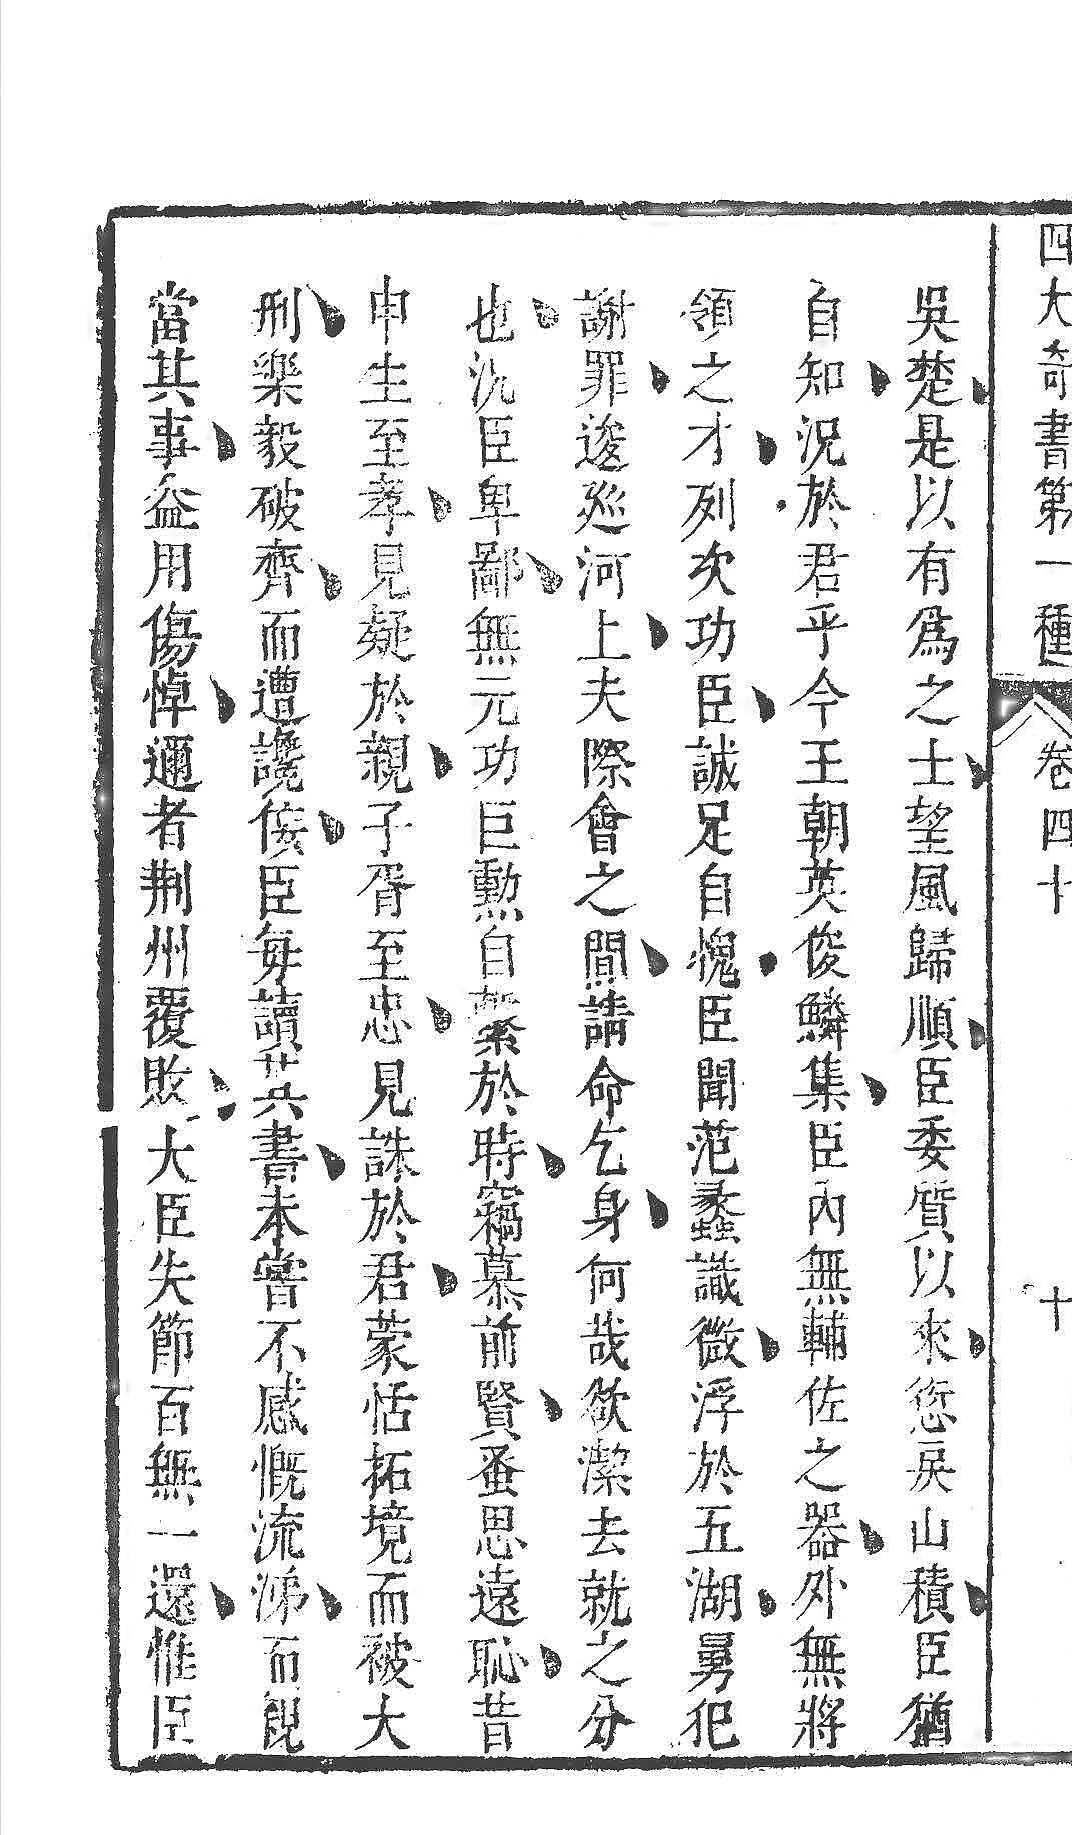 四大奇書第一種 卷四十 十
吳楚是以有爲之士望風歸順臣委質以來愆戾山積臣猶
自知況於君乎今王朝英俊鱗集臣內無輔佐之器外無將
領之才列次功臣誠足自愧臣聞范蠡識微浮於五湖舅犯
謝罪逡巡河上夫際會之間請命乞身何哉欲潔去就之分
也況臣卑鄙無元功巨勲自繫於時竊慕前賢蚤思遠恥昔
申生至孝見疑於親子胥至忠見誅於君蒙恬拓境而被大
刑樂毅破齊而遭讒佞臣每讀其書未嘗不感慨流涕而親
當其事益用傷悼邇者荆州覆敗大臣失節百無一還惟臣